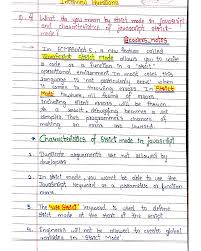 Interview Questions
Q.4 What do you mean by strict mode in javascript
and characteristics of javascript strict-
mode?
Reading notes
In ECMAScript 5, a new feature called
JavaScript Strict Mode allows you to write
a code or a function in a "strict"
operational environment. In most cases, this
language is 'not particularly severe' when
it comes to throwing errors. In 'Strict
Mode', however, all forms of errors,
including silent errors, will be thrown.
As a result, debugging becomes a lot
simpler. Thus programmer's chances of
making an error are lowered.
Characteristics of strict mode in javascript
1. Duplicate arguments are not allowed by
developers
2. In strict mode, you won't be able to use the
JavaScript keyword as a parameter or function
name.
3. The 'use strict' keyword is used to define
strict mode at the start of the script.
4. Engineers will not be allowed to create global
variables in 'Strict Mode'